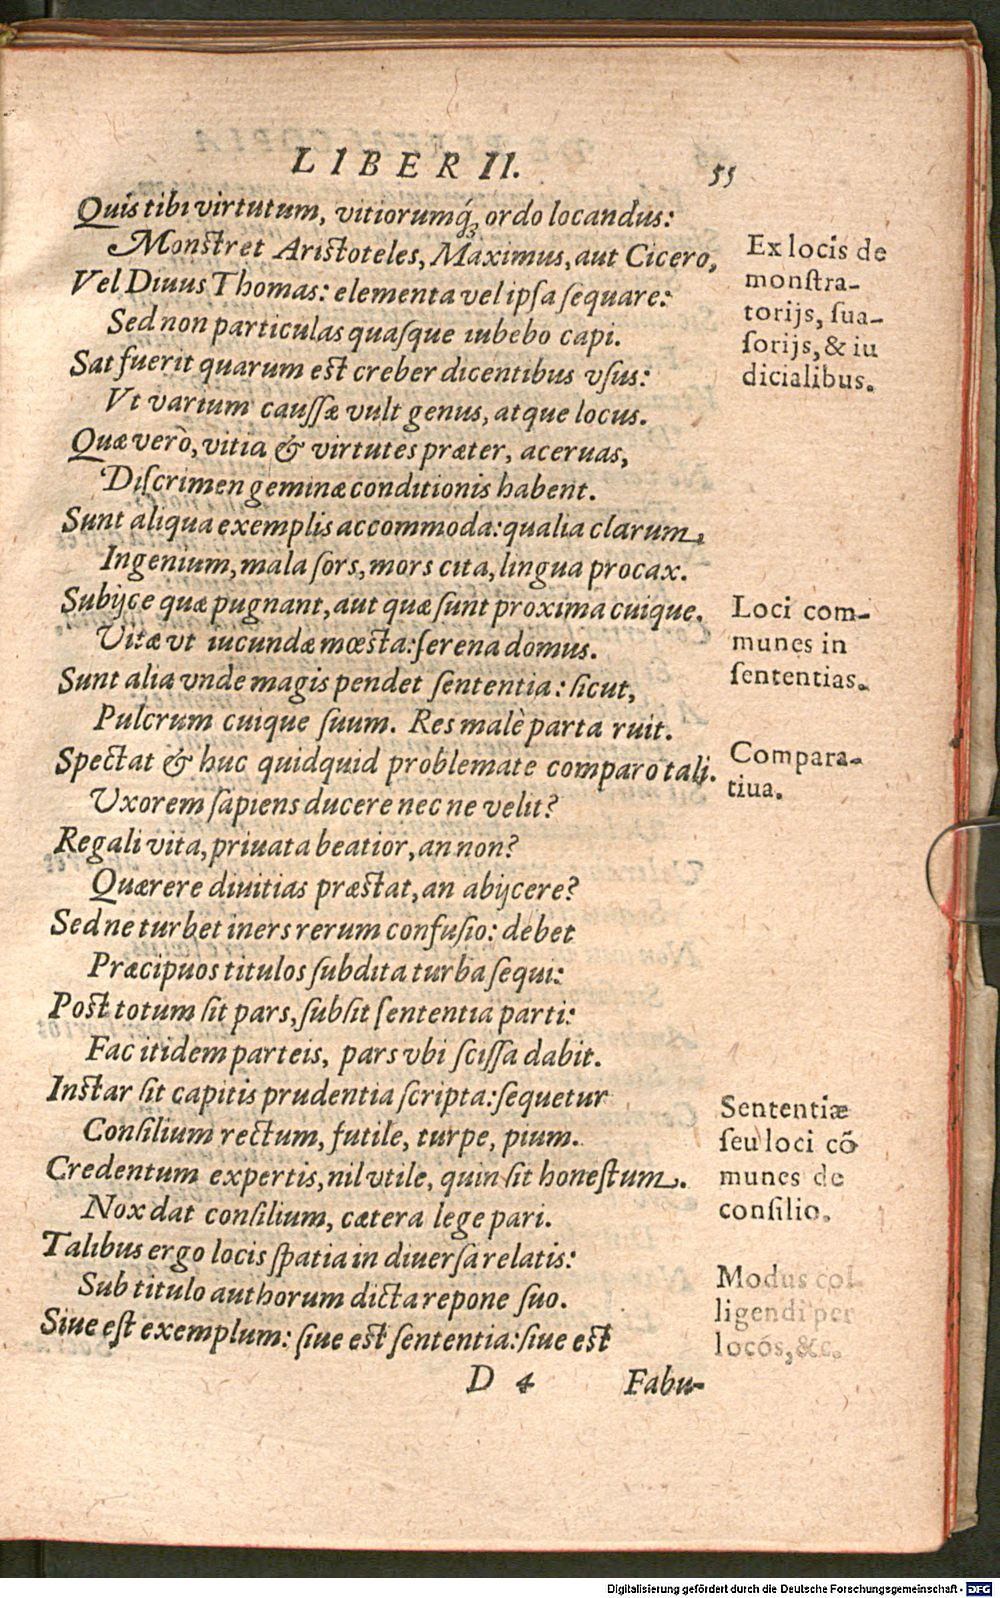 LIBER II. 55
Quis tibi virtutum, vitiorumq́ꝫ ordo locandus:
Monstret Aristoteles, Maximus, aut Cicero,
Vel Diuus Thomas: elementa vel ipſa ſequare:
Sed non particulas quaſque iubebo capi.
Sat fuerit quarum est creber dicentibus vſus:
Vt varium cauſſæ vult genus, atque locus.
Quæ verò, vitia & virtutes præter, aceruas,
Diſcrimen geminæ conditionis habent.
Sunt aliqua exemplis accommoda: qualia clarum,
Ingenium, mala ſors, mors cita, lingua procax.
Subijce quæ pugnant, aut quæ ſunt proxima cuique.
Vitæ vt iucundæ mœsta: ſerena domus.
Sunt alia vnde magis pendet ſententia: ſicut,
Pulcrum cuique ſuum. Res malè parta ruit.
Spectat & huc quidquid problemate comparo tali.
Vxorem ſapiens ducere nec ne velit?
Regali vita, priuata beatior, an non?
Quærere diuitias præstat, an abijcere?
Sed ne turbet iners rerum confuſio: debet
Præcipuos titulos ſubdita turba ſequi:
Post totum ſit pars, ſubſit ſententia parti:
Fac itidem parteis, pars vbi ſciſſa dabit.
Instar ſit capitis prudentia ſcripta: ſequetur
Conſilium rectum, futile, turpe, pium.
Credentum expertis, nil vtile, quin ſit honeſtum.
Nox dat conſilium, cætera lege pari.
Talibus ergo locis ſpatia in diuerſa relatis:
Sub titulo authorum dicta repone ſuo.
Siue eſt exemplum: ſiue est ſententia: ſiue est
D 4 Fabu-
Ex locis de
monſtra-
torijs, ſua-
ſorijs, & iu
dicialibus.
Loci com-
munes in
ſententias.
Compara-
tiua.
Sententiæ
ſeu loci cō
munes de
conſilio.
Modus col
ligendi per
locós, &c.
Digitalisierung gefördert durch die Deutsche Forschungsgemeinschaft - DFG